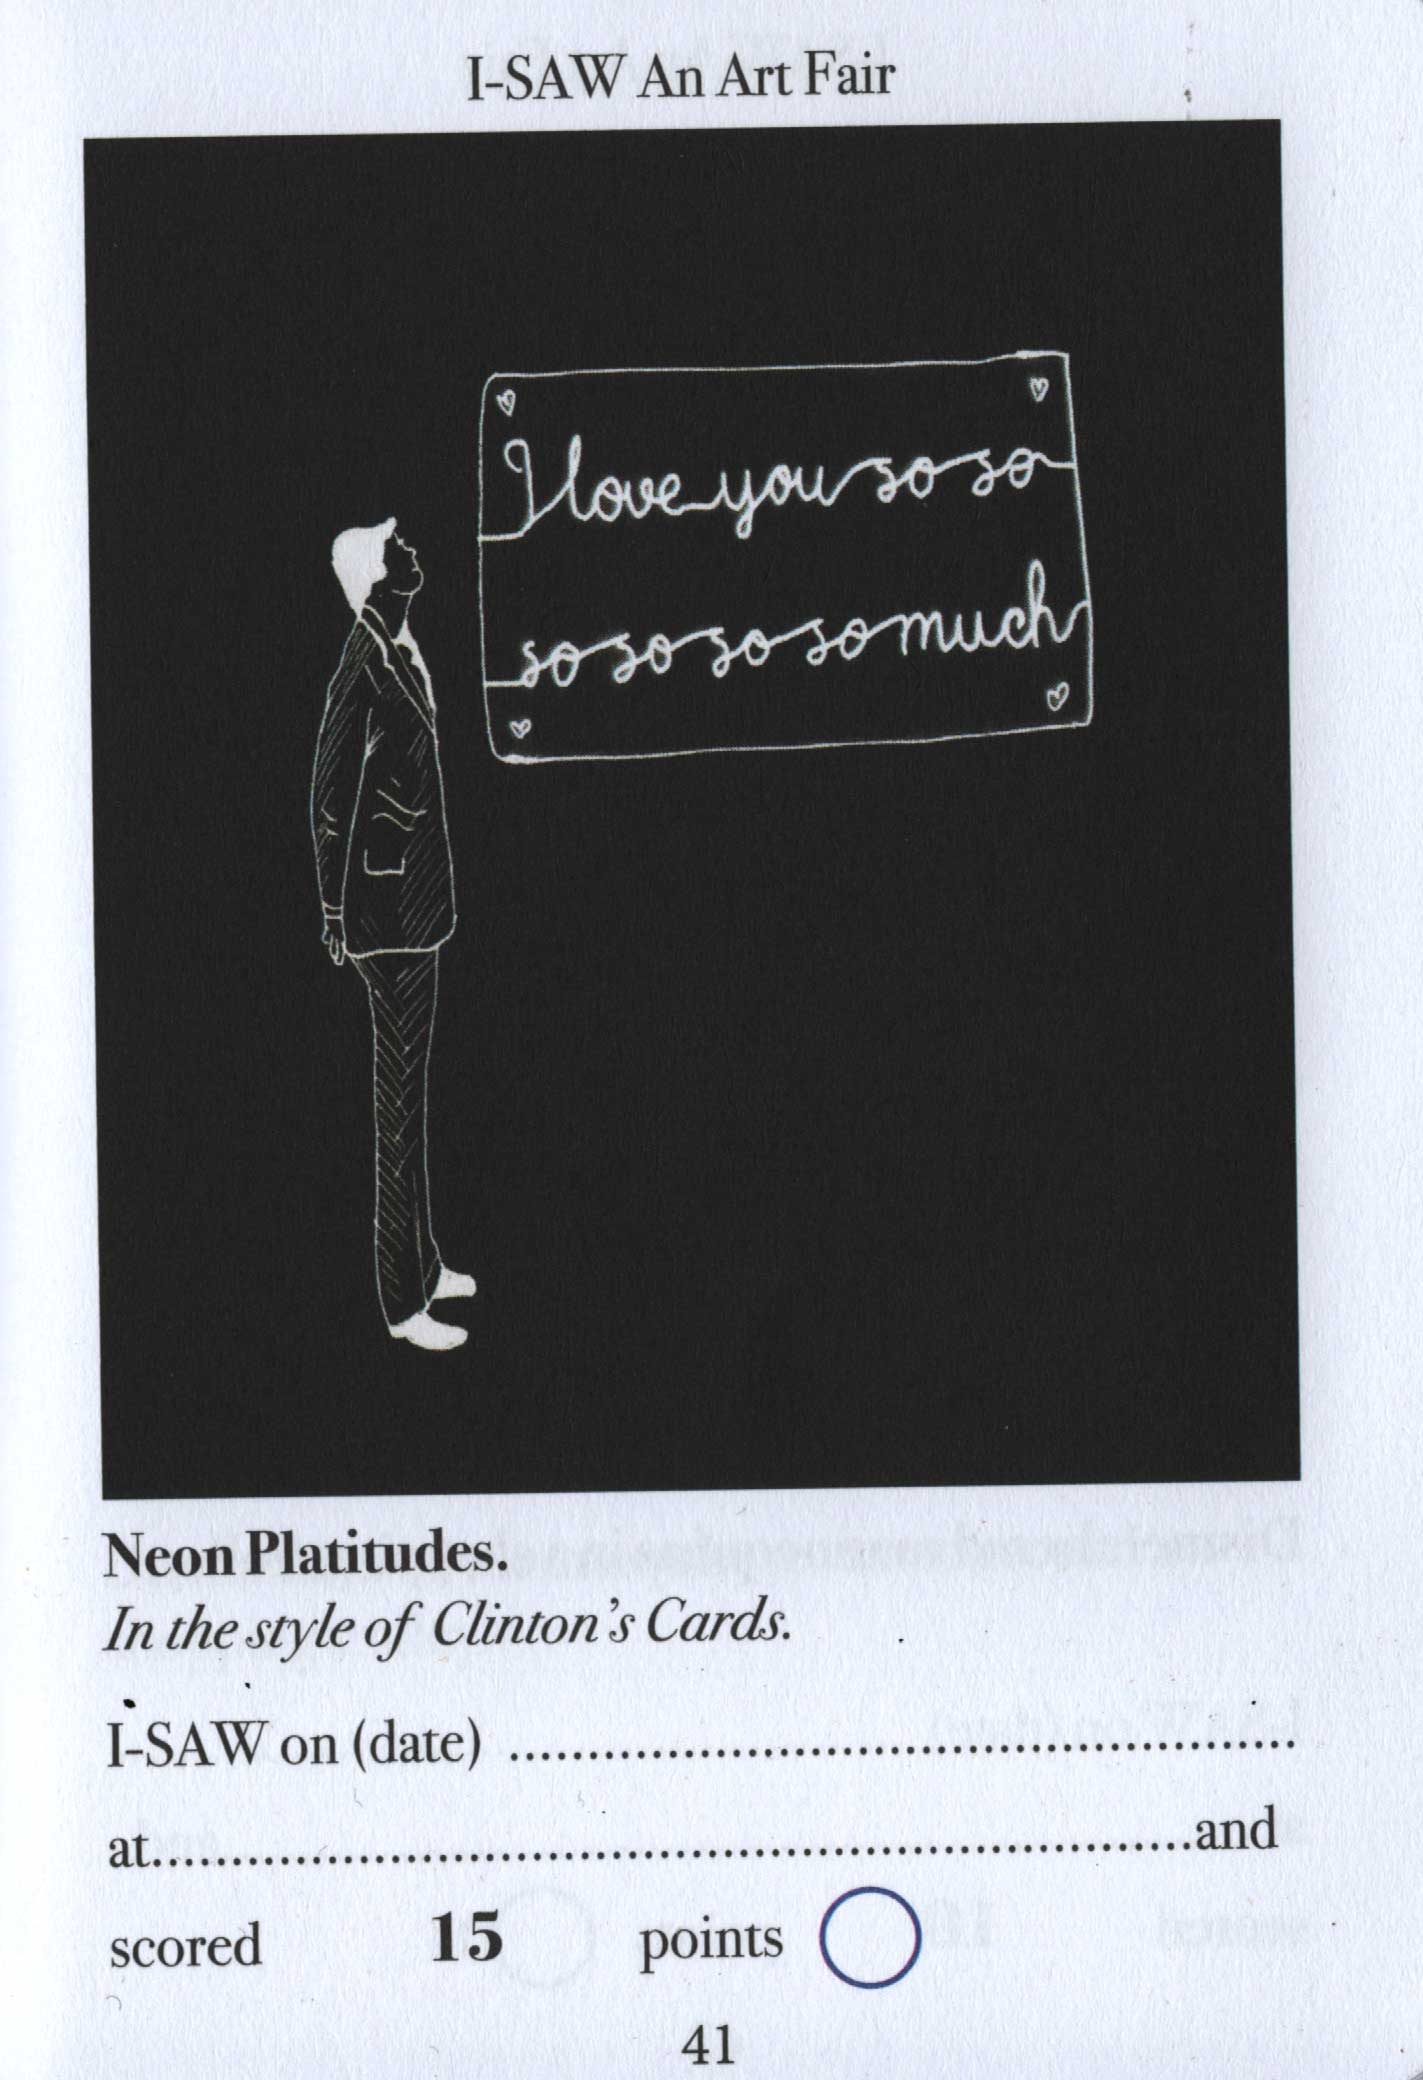 I-SAW An Art Fair
I love you so so
so so so so much
Neon Platitudes.
In the style of Clinton's Cards.
I-SAW on (date) ........................................................
at........................................................................and
scored 15 points
41